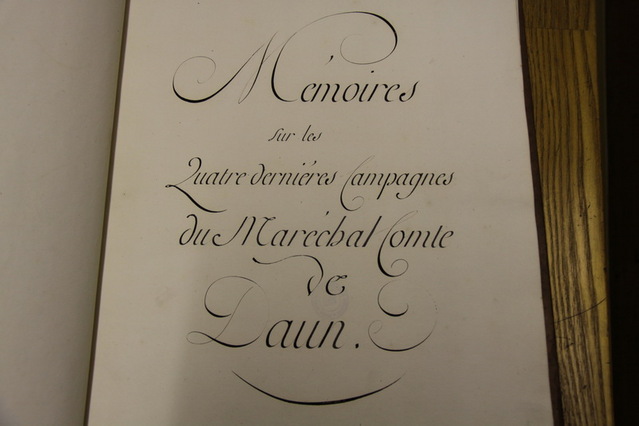 Mémoires
sur les
Quatre dernières Campagnes
du Maréchal Comte
de
Daun.